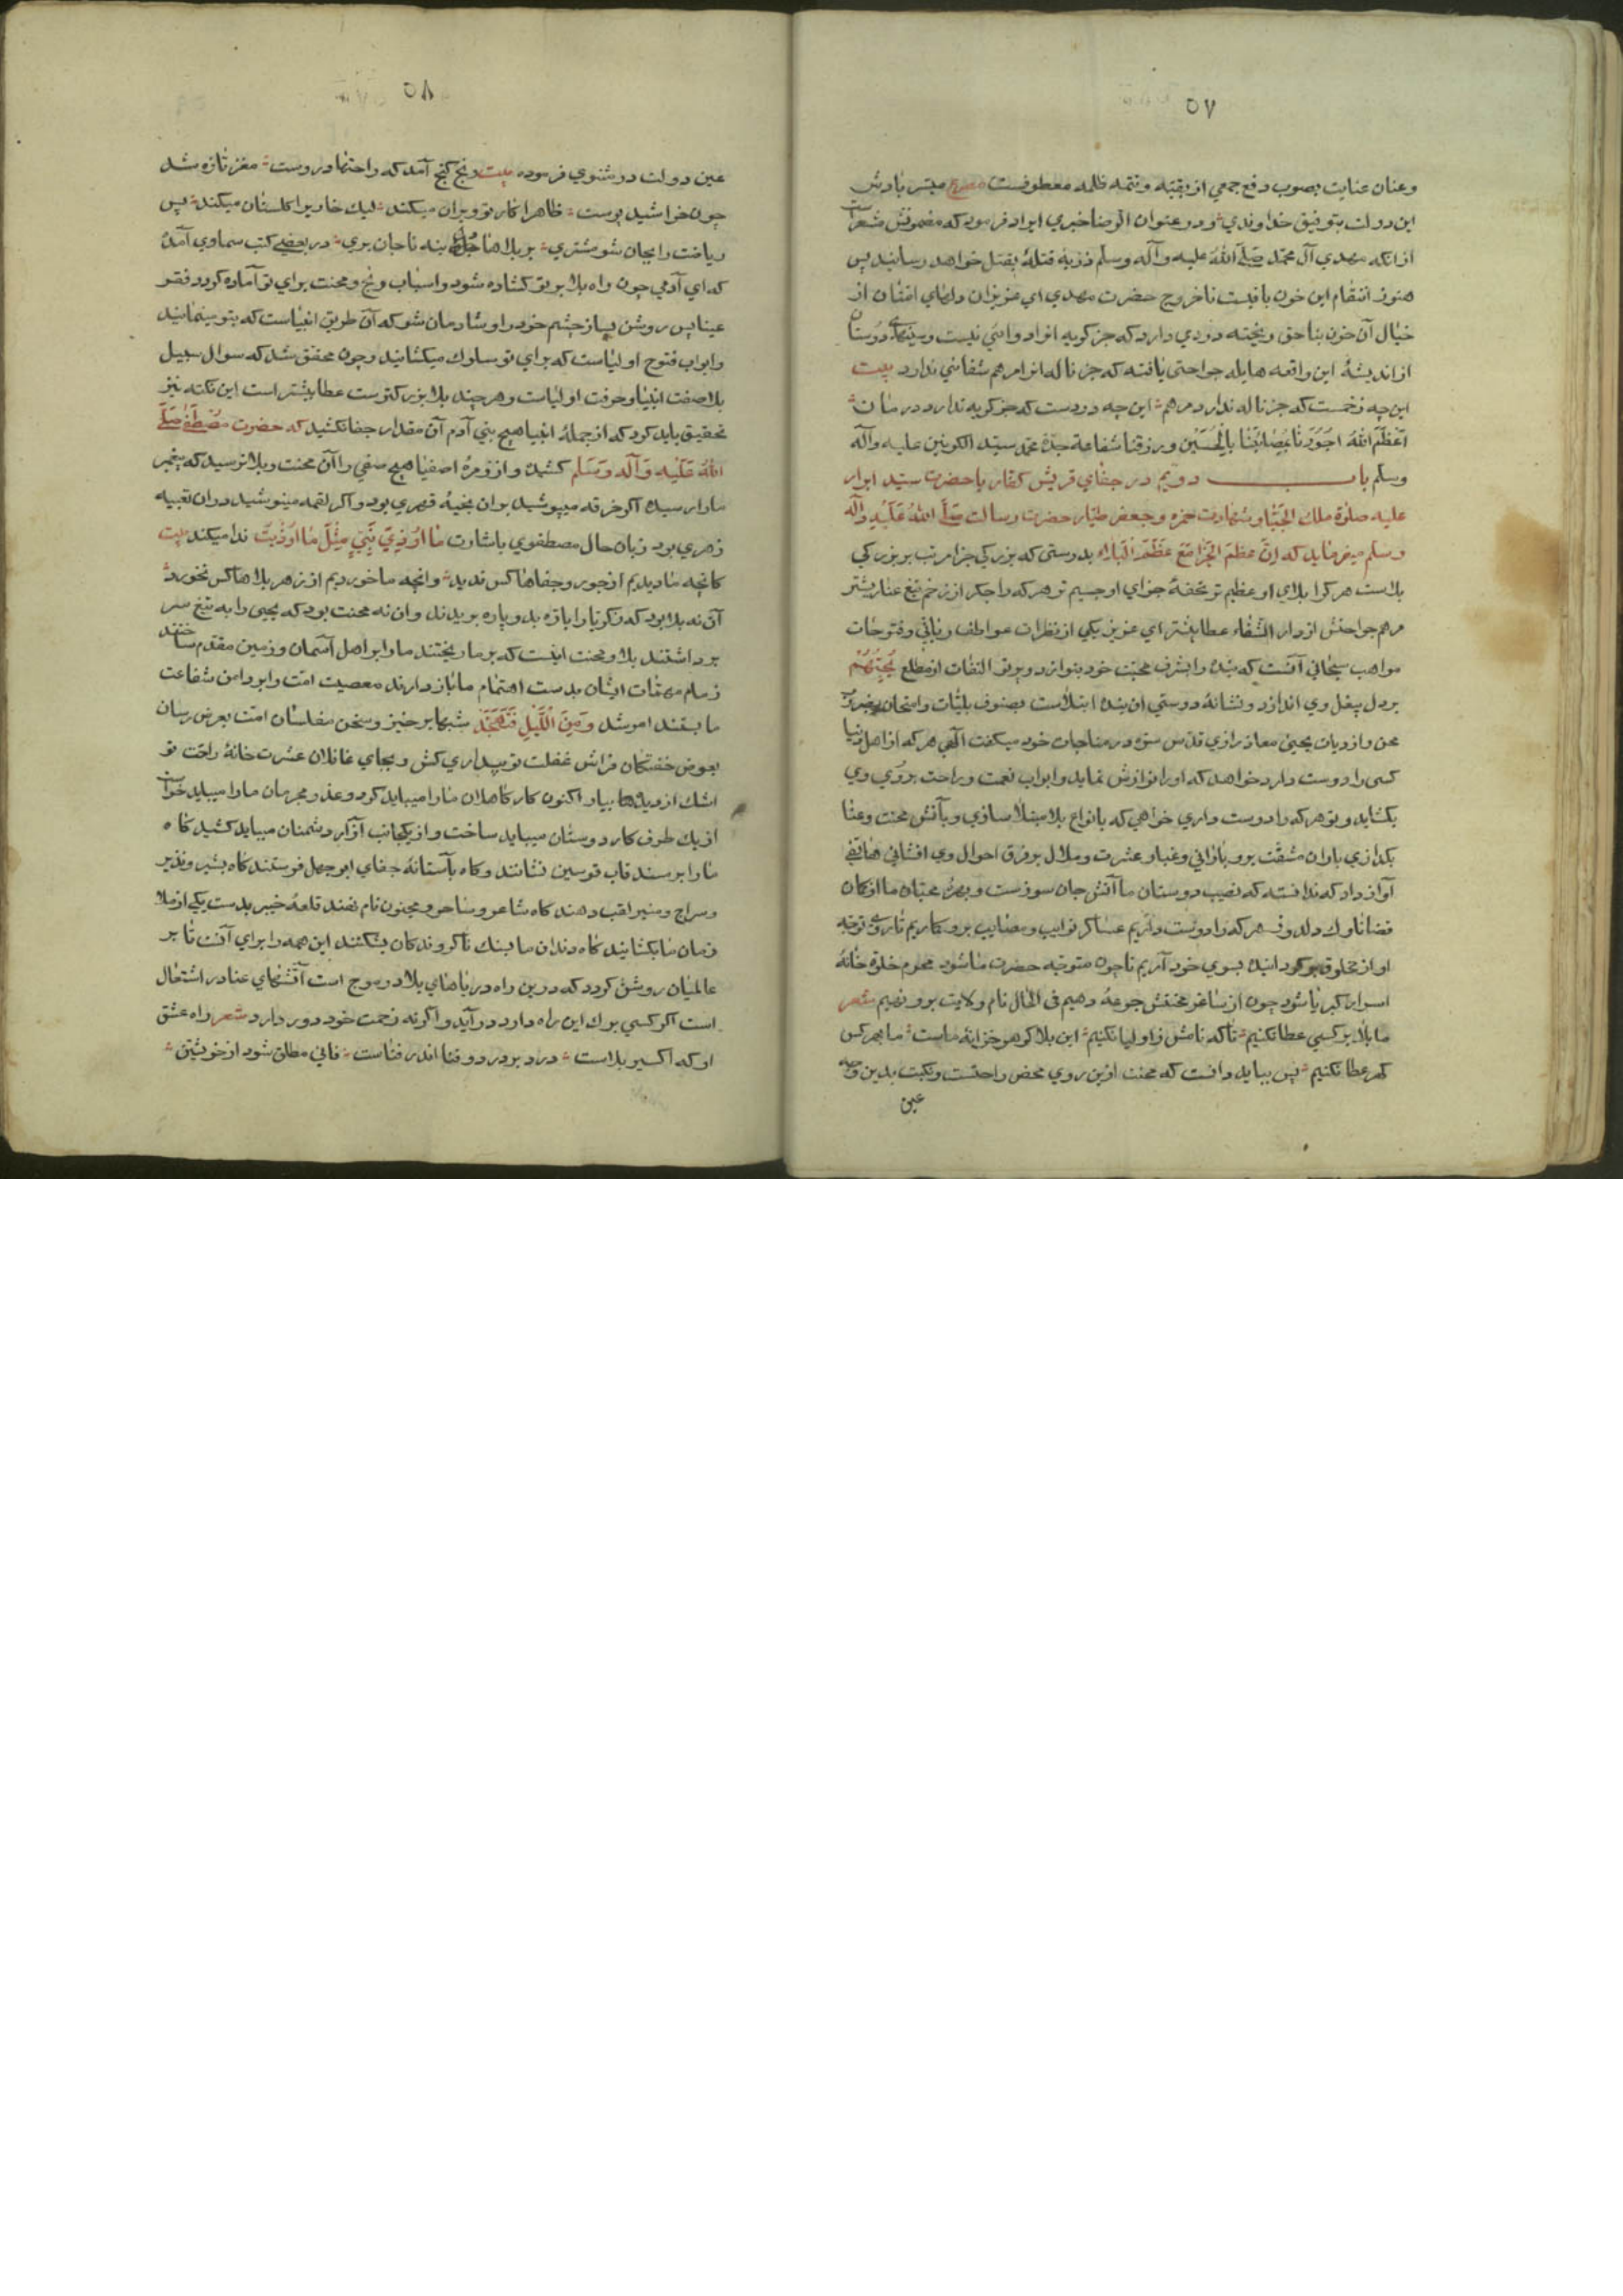 ٥٧
وعنان عنایت بصوب دفع جمعی از بقیه وتتمه ظلمه معطوفست مصرع میسر بادش
این دولت بتوفیق خداوندی ودر عنوان الرضا خبری ایراد فرموده که مضمونش مشعرست
ازانکه مهدی آل محمد صلی الله علیه وآله وسلم ذریه قتلهٔ بقتل خواهد رسانید پس
هنوز انتقام این خون باقیست تا خروج حضرت مهدی ای عزیزان دلهای افتان از
خیال آن خون بناحق ریخته دردی دارد که جز کریه انرا دوائی نیست وسینهای دوستان
از اندیشهٔ این واقعه هایله جراحتی یافته که جز ناله انرا مرهم شفائی ندارد بیت
این چه زخمست که جز ناله ندارد مرهم این چه دردست که جز کریه ندارد درمان
اعظم الله اجورنا بمصائبنا بالحسین ورزقنا شفاعة جده محمد سید الکونین علیه وآله
وسلم باب دویم در جفای قریش کفار با حضرت سید ابرار
علیه صلوة ملك الجبار وشهادت حمزه وجعفر طیار حضرت رسالت صلی الله علیه وآله
وسلم میفرماید که ان عظم الجزا مع عظم البلاء بدرستی که بزرکی جزا مرتب بر بزرکی
بلاست هر کرا بلای او عظیم تر تحفهٔ جزای او جسیم تر هر که را جکر از زخم تیغ عنا ریشتر
مرهم جراحتش از دار الشفاء عطا بیشتر ای عزیز یکی از نظرات عواطف ربانی وفتوحات
مواهب سبحانی آنست که بندهٔ را بشرف محبت خود بنوازد وپرتو التفات از مطلع یحبهم
بر دل بیغل وی اندازد ونشانهٔ دوستی ان بندهٔ ابتلاست بصنوف بلیات وامتحان بضروب
محن وازویات یحیی معاذ رازی قدس سره در مناجات خود میکفت الهی هر که از اهل دنیا
کسی را دوست دارد خواهد که اورا نوازش نماید وابواب نعمت وراحت بر روی وی
بکشاید وتو هر که را دوست داری خواهی که بانواع بلا مبتلا سازی وبآتش محنت وعنا
بکدازی باران مشقت برو بارانی وغبار عشرت وملال بر فرق احوال وی افشانی هاتفی
آواز داد که ندانسته که نصیب دوستان ما آتش جان سوزست وبهرهٔ محبان ما از کان
قضا ناوك دلدوز هر که را دوست داریم عساکر نوایب ومصایب برو کماریم تا روی توجه
او از مخلوق بر کردانیده بسوی خود آریم تا چون متوجه حضرت ما شود محرم خلوة خانهٔ
اسرار کبریا شود چون از ساغر محنتش جرعهٔ دهیم فی الحال نام ولایت برو نهیم شعر
ما بلا بر کسی عطا نکنیم تا که نامش ز اولیا نکنیم این بلا کوهر خزانهٔ ماست ما بهر کس
کهر عطا نکنیم پس بباید دانست که محنت ازین روی محض راحتست ونکبت بدین وجه
عین
٥٨
عین دولت در مثنوی فرموده بیت رنج کنج آمد که راحتها دروست مغز تازه شد
چون خراشید پوست ظاهرا کار تو ویران میکند لیك خاریرا کلستان میکند پس
ریاضت را بجان شو مشتری بر بلاها بنه تا جان بری در بعضی کتب سماوی آمده
که ای آدمی چون راه بلا بر تو کشاده شود واسباب رنج ومحنت برای تو آماده کردد فقر
عینا پس روشن بساز چشم خود را وشادمان شو که آن طریق انبیاست که بتو مینمایند
وابواب فتوح اولیاست که برای تو سلوك میکشایند وچون محقق شد که سوال سبیل
بلا صفت انبیا وحرفت اولیاست وهر چند بلا بزرکتر ست عطا بیشتر است این نکته نیز
تحقیق باید کرد که از جملهٔ انبیا هیچ بنی آدم آن مقدار جفا نکشید که حضرت مصطفی صلی
الله علیه وآله وسلم کشید واز زمرهٔ اصفیا هیچ صفی را آن محنت وبلا نرسید که پیغمبر
ما را رسید اکر خرقه میپوشید بران بخیهٔ قهری بود واکر لقمه مینوشید دران تعبیه
زهری بود زبان حال مصطفوی باشارت ما اوذی نبی مثل ما اوذیت ندا میکند بیت
کانچه ما دیدیم از جور وجفاها کس ندید وانچه ما خوردیم از زهر بلاها کس نخورد
آن نه بلا بود که زکریا را باره بدو پاره بریدند وان نه محنت بود که یحیی را به تیغ سر
برداشتند بلا ومحنت اینست که بر ما ریختند ما را بر اهل آسمان وزمین مقدم ساختند
زمام مهمات ایشان بدست اهتمام ما باز دارند معصیت امت را بر دامن شفاعت
ما بستند امر شد ومن اللیل فتهجد شبها بر خیز وسخن مفلسان امت بعرض رسان
بعوض خفتکان فراش غفلت تو بیداری کش وبجای غافلان عشرت خانهٔ راحت تو
اشك از دیدها ببار اکنون کار کاهلان ما را میباید کرد وعذر مجرمان ما را میباید خواست
از یك طرف کار دوستان میباید ساخت واز یکجانب آزار دشمنان میباید کشید کاه
ما را بر مسند قاب قوسین نشانند وکاه بآستانهٔ جفای ابو جهل فرستند کاه بشیر ونذیر
وسراج ومنیر لقب دهند کاه شاعر وساحر ومجنون نام نهند قلعهٔ خیبر بدست یکی از ملا
زمان ما بکشایند کاه دندان ما بسنك ناکروندکان بشکنند این همه را برای آنست تا بر
عالمیان روشن کردد که درین راه دریاهای بلا در موج است آتشهای عنا در اشتغال
است اکر کسی برك این راه دارد در آید واکر نه زحمت خود دور دارد شعر راه عشق
او که اکسیر بلاست درد بر درد وفنا اندر فناست فانی مطلق شود از خویشتن